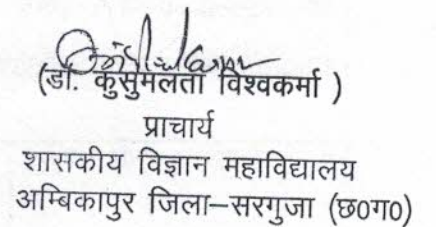 (डॉ. कुसुमलता विश्वकर्मा )
प्राचार्य
शासकीय विज्ञान महाविद्यालय
अम्बिकापुर जिला–सरगुजा (छ0ग0)